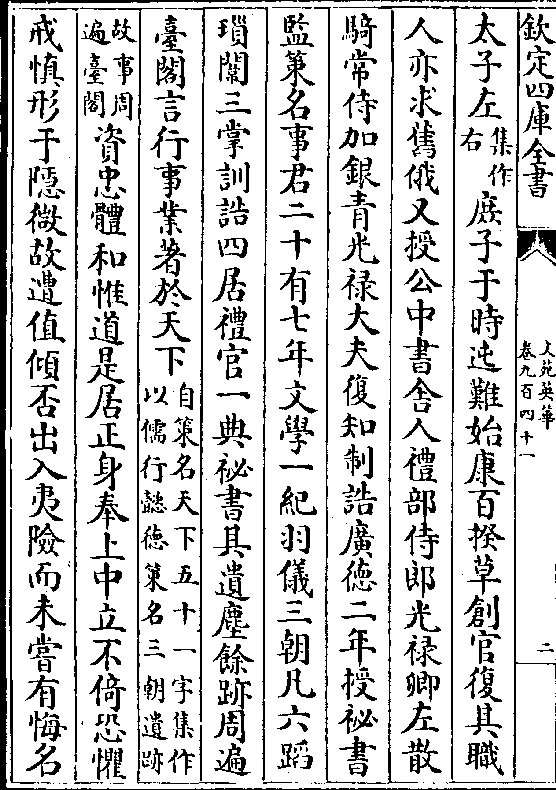 欽定四庫全書
文苑英華
卷九百四十一
二
太子左集作右庶子于時迍難始康百揆草創官復其職
人亦求舊俄又授公中書舍人禮部侍郎光禄卿左散
騎常侍加銀青光禄大夫復知制誥廣徳二年授祕書
監策名事君二十有七年文學一紀羽儀三朝凡六蹈
瑣闈三掌訓誥四居禮官一典祕書其遺塵餘跡周遍
臺閣言行事業著於天下自策名天下五十一字集作以儒行懿徳策名三朝遺跡
故事周遍臺閣資忠體和惟道是居正身奉上中立不倚恐懼
戒慎形于隠微故遭值傾否出入夷險而未嘗有悔名